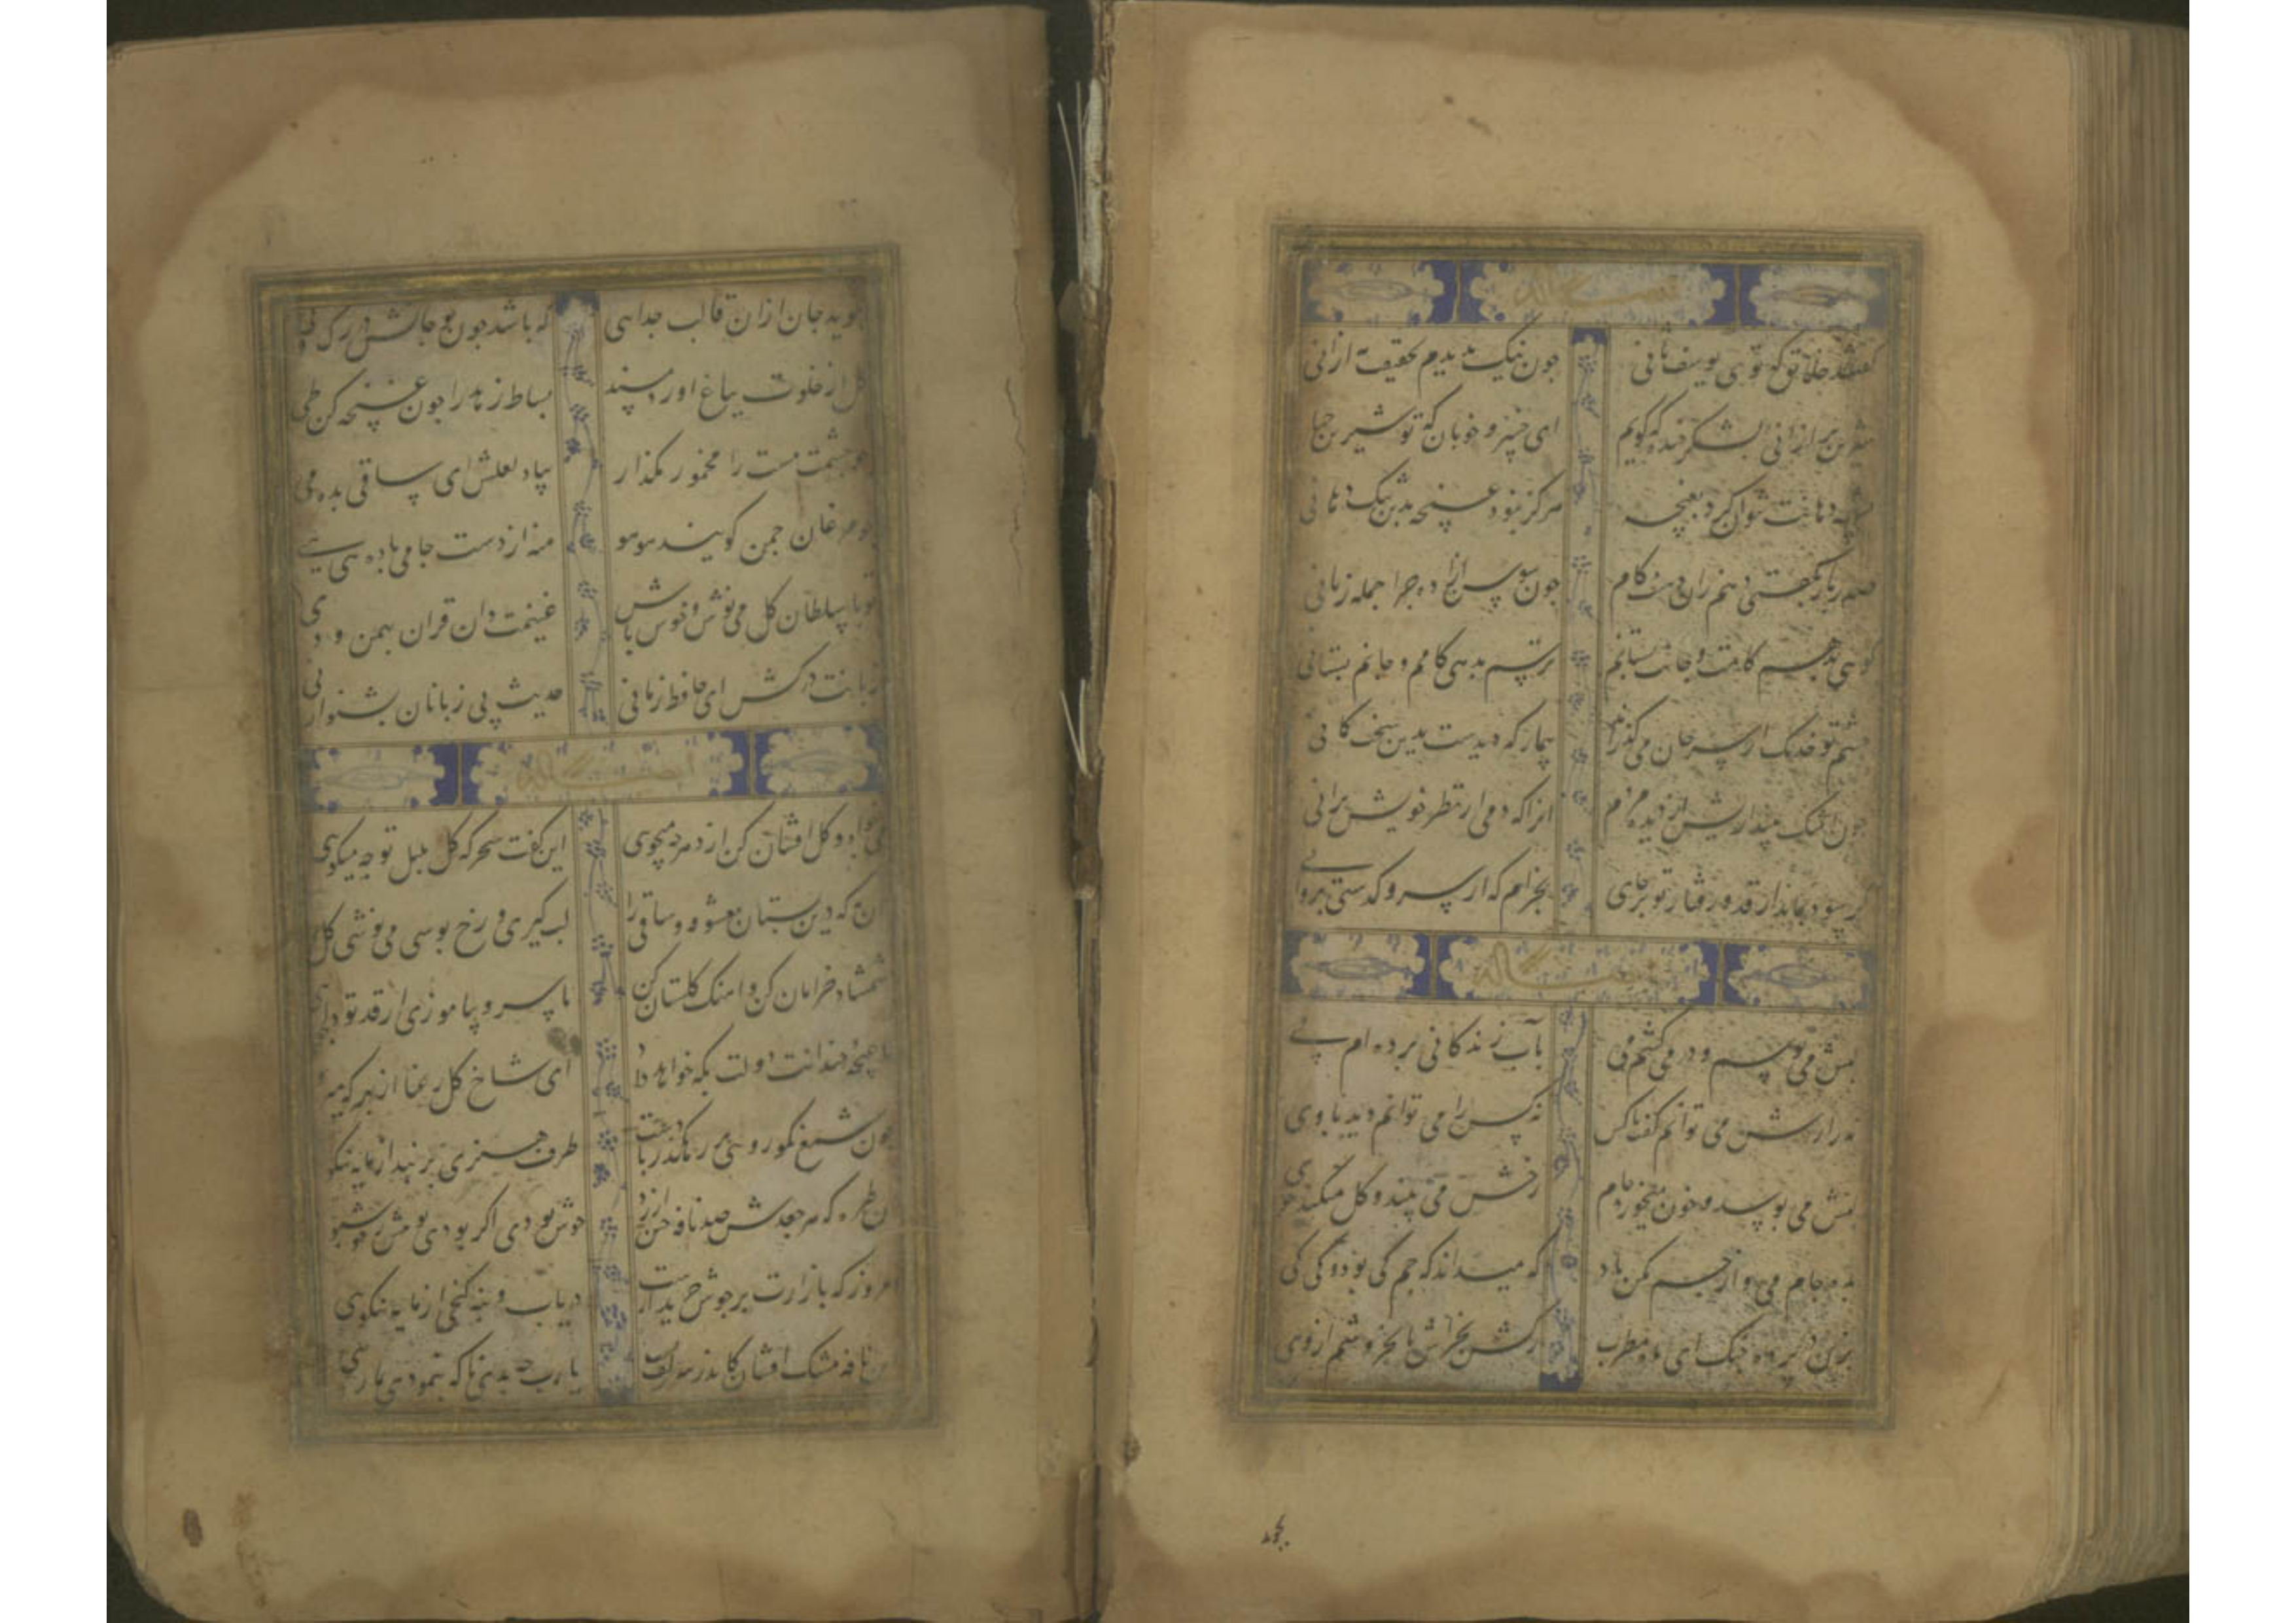 گفتند خلایق که توی یوسف ثانی جون نیک بدیدم بحقیقت به ازانی
شیرین تر ازانی بشکر خنده که کویم ای خسرو خوبان که تو شیرین جهانی
تشبیه دهانت نتوان کرد بغنچه هرکز نبود غنچه بدین تنک دهانی
صد بار بکفتی دهم زان دهنت کام جون سوسن ازاد جرا جمله زبانی
کویی بدهم کامت و جانت بستانم ترسم ندهی کامم و جانم بستانی
چشم تو خدنک از سپر جان می کذراند بیمار که دیدست بدین سخت کمانی
جون اشک بیندازیش از دیده مردم انرا که دمی از نظر خویش برانی
بخرام که از سرو کذشتی بروانی
لبش می بوسم و در می کشم می بآب زندکانی برده ام پی
نه رازش می توانم کفت با کس نه کس را می توانم دید با وی
لبش می بوسد و خون میخورد جام رخش می بیند و کل میکند خوی
بده جام می و از جم مکن یاد که میداند که جم کی بود و کی کی
بزن در پرده چنک ای ماه مطرب رکش بخراش تا بخروشم از وی
نجوید جان ازان قالب جدایی که باشد جون تو جانش در رک و پی
کل از خلوت بباغ اورد مسند بساط زهد را جون غنچه کن طی
جو چشمت مست را مخمور مکذار بیاد لعلش ای ساقی بده می
جو مرغان جمن کویند هوهو منه از دست جامی باده هی هی
تو با سلطان کل می نوش و خوش باش غنیمت دان قران بهمن و دی
زبانت درکش ای حافظ زمانی حدیث بی زبانان بشنو از نی
می خواه و کل افشان کن از دهر چه میجوی این کفت سحرکه کل بلبل تو چه میکویی
لب کیری و رخ بوسی می نوشی و کل
شمشاد خرامان کن و اهنک کلستان کن تا سرو بیاموزی از قد تو دلجویی
تا غنچه خندانت دولت بکه خواهد داد ای شاخ کل رعنا از بهر که میرویی
جون شمع نکورویی در رهکذر بادست طرف هنری بربند از مایه نیکویی
آن طره که هر جعدش صد نافه چین ارزد خوش بودی اکر بودی بویش ز خوشخویی
امروز که بازارت پر جوش خریدارست دریاب و بنه کنجی از مایه نیکویی